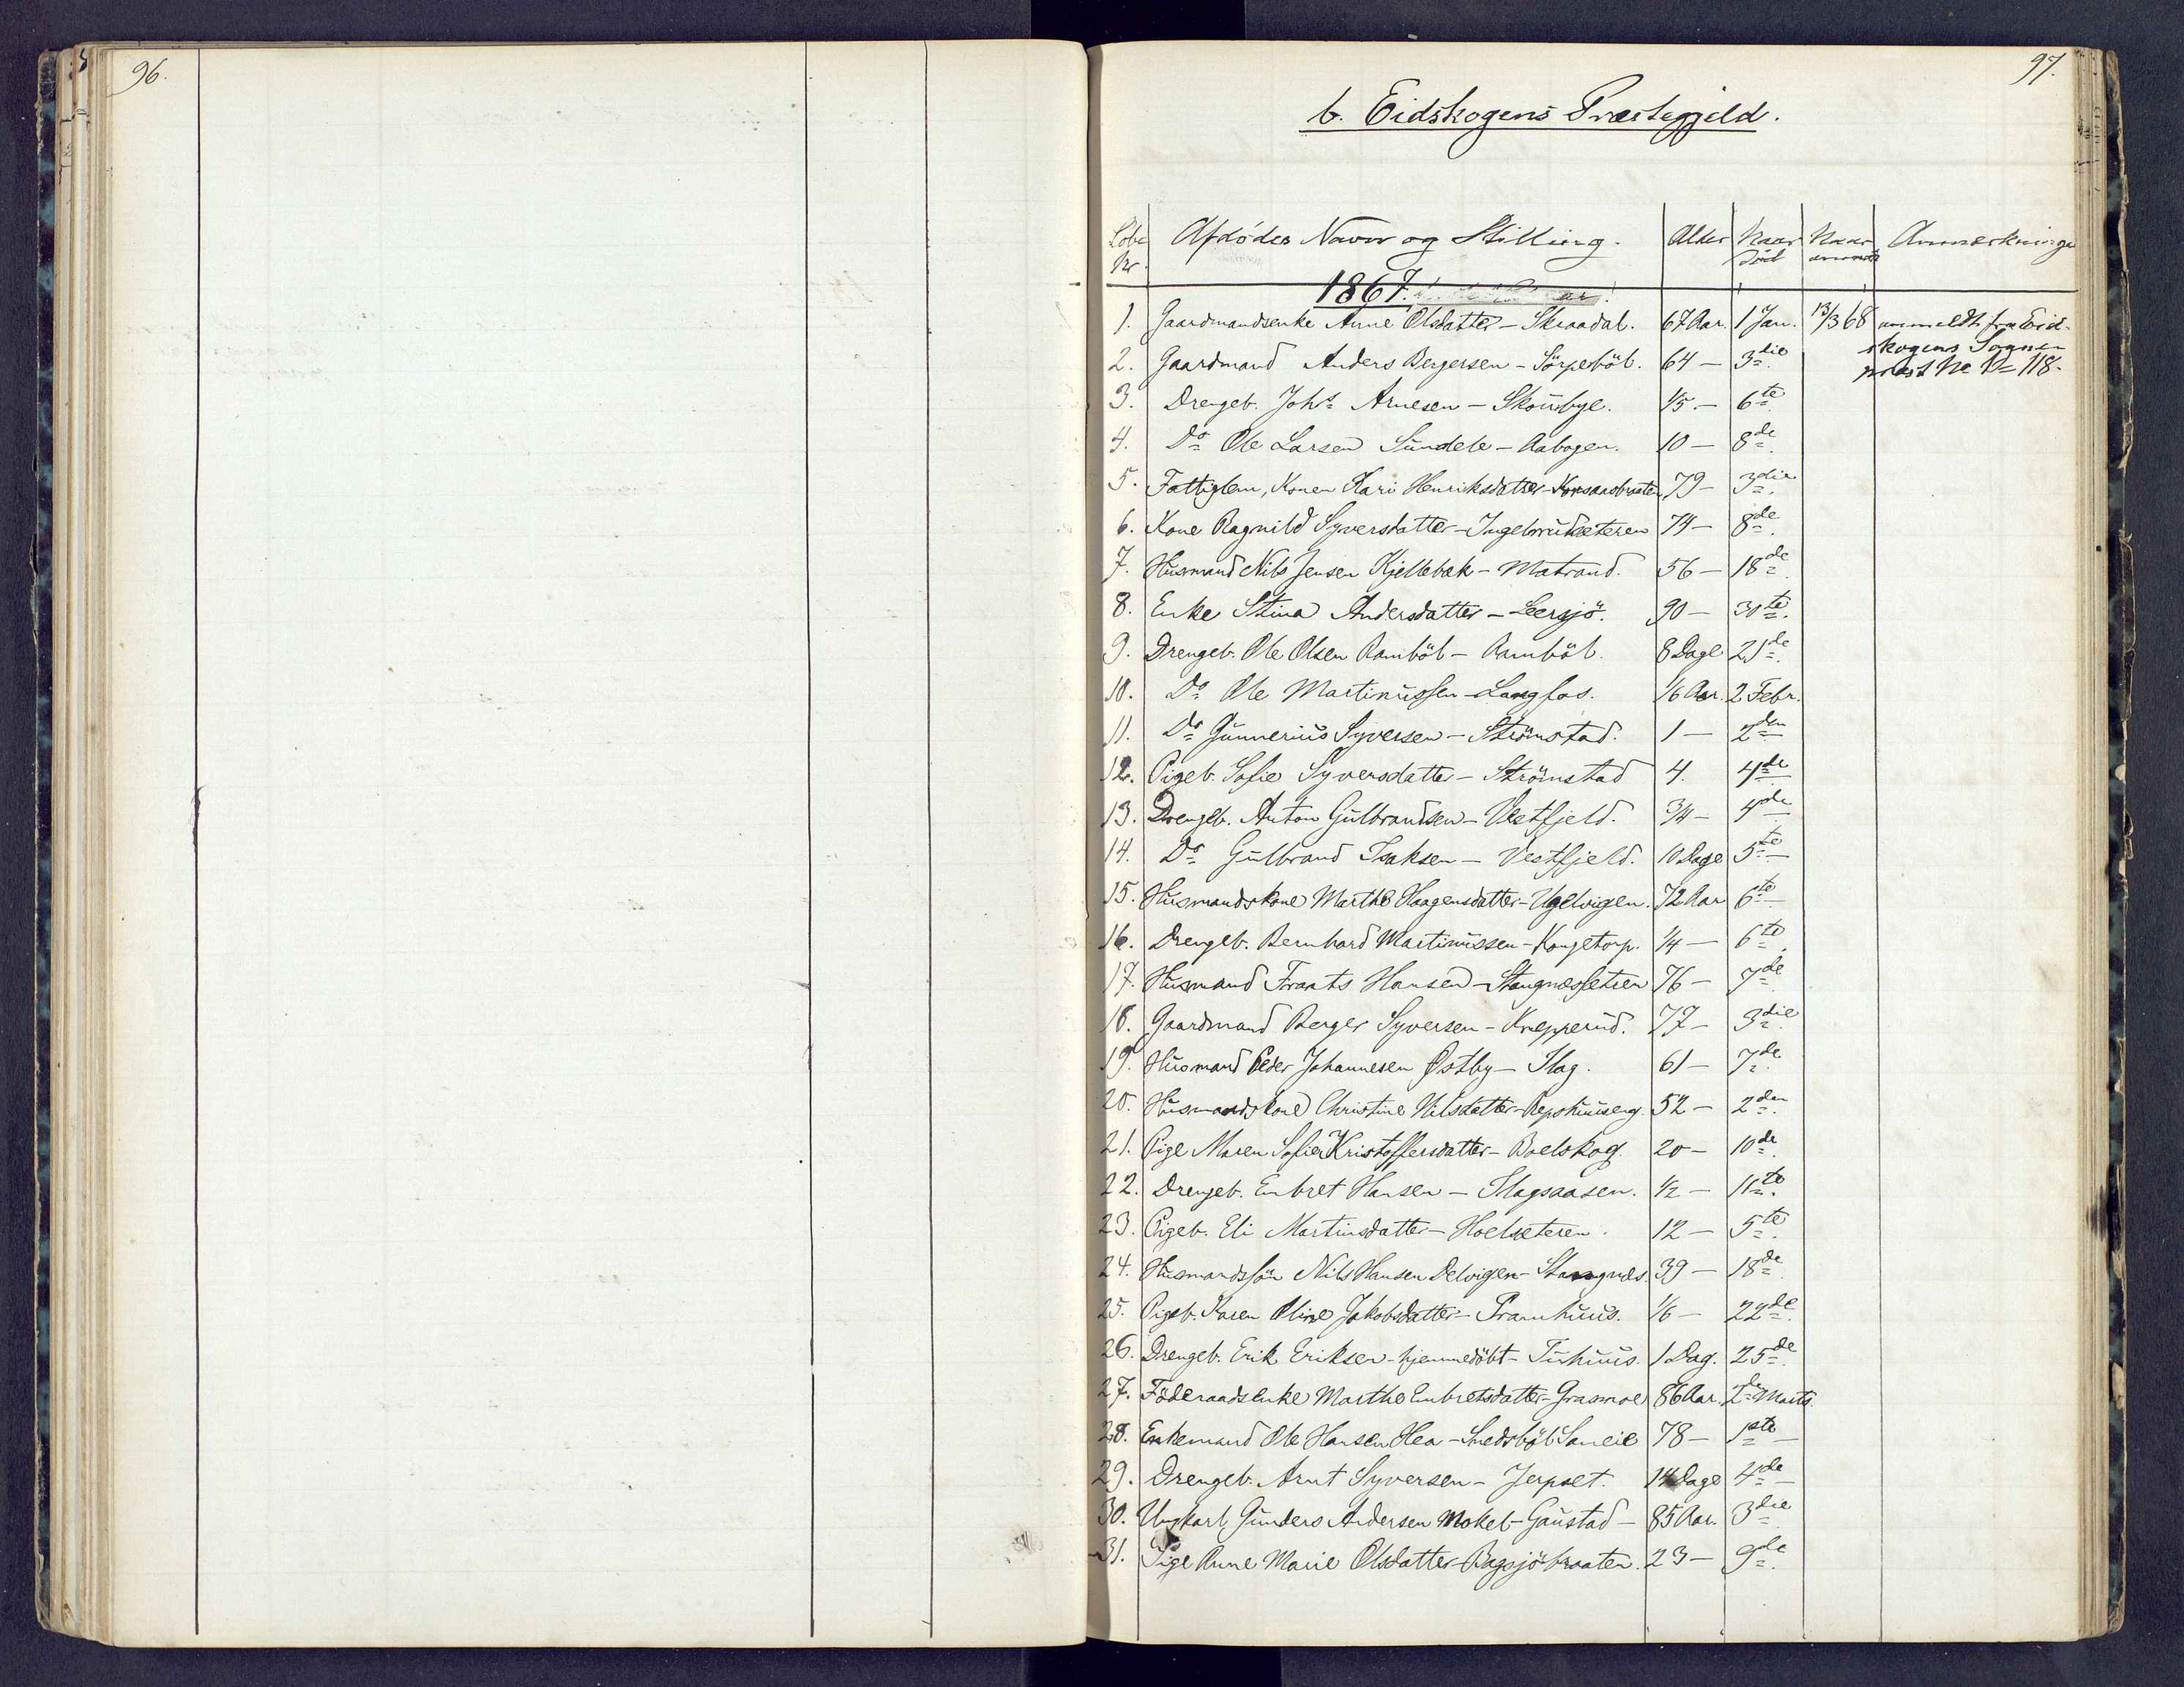 96.
97.
b. Eidskogens Præstegjeld.
Löbe Nr. Afdödes Navn og Stilling. Alder Naar död Naar anmeldt Anmærkninger
1867.
1. Gaardmandsenke Anne Olsdatter - Skraadal. 67 Aar. 1 Jan. 13/3 68 anmeldt fra Eid-
skogens Sogne-
2. Gaardmand Anders Bergersen - Sörpeböl. 64 - 3die præst No 118.
3. Drengeb. Johs Arnesen - Skousbye. 1/5 - 6te
4. Do Ole Larsen Sundele - Aabogen. 10 - 8de
5. Fattiglem, Konen Kari Henriksdatter - 79 - 3die
6. Kone Ragnild Syversdatter - Ingelsrudsæteren 74 - 8de
7. Husmand Nils Jensen Kjellebæk - Matrand. 56 - 18de
8. Enke Stina Andersdatter - Leersjö. 90 - 30te
9. Drengeb. Ole Olsen Ramböl - Ramböl. 8 Dage 21de
10. Do Ole Martinussen - Langfos. 1/6 Aar. 2 Febr.
11. Do Gunnerius Syversen - Strömstad. 1 - 2den
12. Pigeb. Sofie Syversdatter - Strömstad 4. 4de
13. Drengeb. Anton Gulbrandsen - Vestfjeld. 3/4 - 4de
14. Do Gulbrand Isaksen - Vestfjeld. 10 Dage 5te
15. Husmandskone Marthe Haagensdatter - Ugelvigen. 72 Aar 6te
16. Drengeb. Bernhard Martinussen - Kongetorp. 1/4 - 6te
17. Husmand Frants Hansen - Stangnæssetren 76 - 7de
18. Gaardmand Berger Syversen - Knepperud. 77 - 3die
19. Husmand Peder Johannesen Østby - Slag. 61 - 7de
20. Husmandskone Christine Nilsdatter - Repshuuseng. 52 - 2den
21. Pige Maren Sofie Kristoffersdatter - Boelskog 20 - 10de
22. Drengeb. Embret Hansen - Slagsaasen. 1/2 - 11te
23. Pigeb. Eli Martinsdatter - Hoelsæteren. 12 - 5te
24. Husmandssön Nils Hansen Delvigen - Stangnæs. 39 - 18de
25. Pigeb. Karen Oline Jakobsdatter - Pramhuus. 1/6 - 22de
26. Drengeb. Erik Eriksen - hjemmedöbt - Tuhuus. 1 Dag. 25de
27. Föderaadsenke Marthe Embretsdatter - Grasmoe 86 Aar. 2de Marts.
28. Enkemand Ole Hansen Hea - Smedsböl Saneie 78 - 1ste
29. Drengeb. Arnt Syversen - Jerpset. 14 Dage 4de
30. Ungkarl Gunders Andersen Mokel - Gaustad - 85 Aar. 3die
31. Pige Anne Marie Olsdatter - Bagsjöbraaten. 23 - 9de